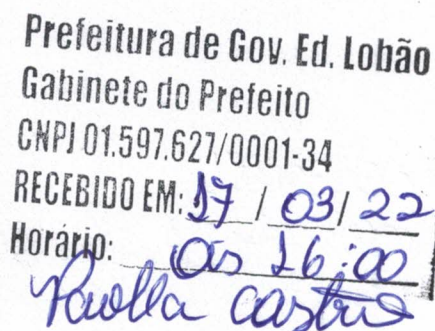 Prefeitura de Gov. Ed. Lobão
Gabinete do Prefeito
CNPJ 01.597.627/0001-34
RECEBIDO EM: 17 / 03 / 22
Horário: às 16:00
Paolla Castro